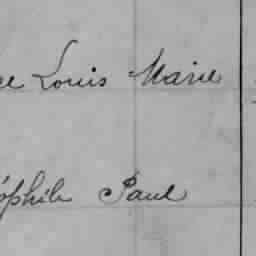 Louis Marie
óphile Paul